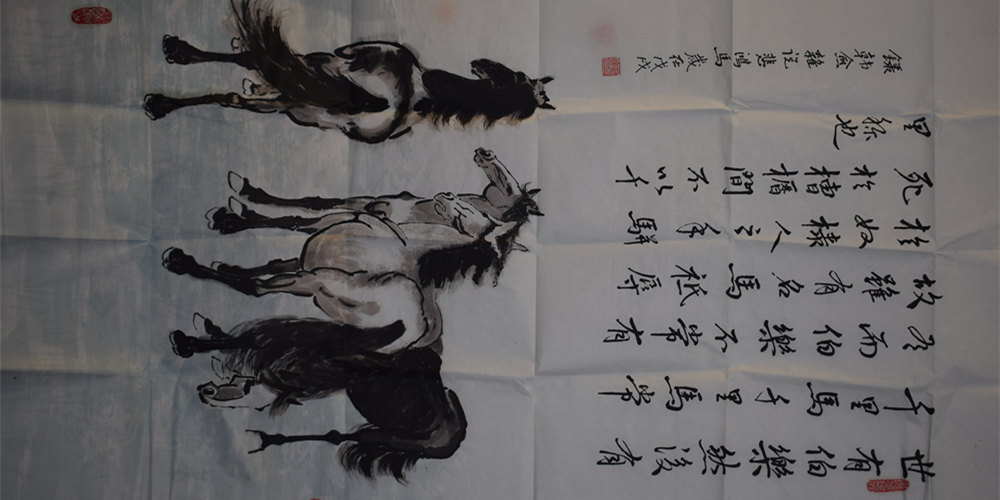 世有伯樂然後有
千里馬千里馬常
有而伯樂不常有
故雖有名馬祗辱
於奴隸人之手駢
死於槽櫪間不以千
里稱也
韓愈雜說悲鴻馬歲在戊戌